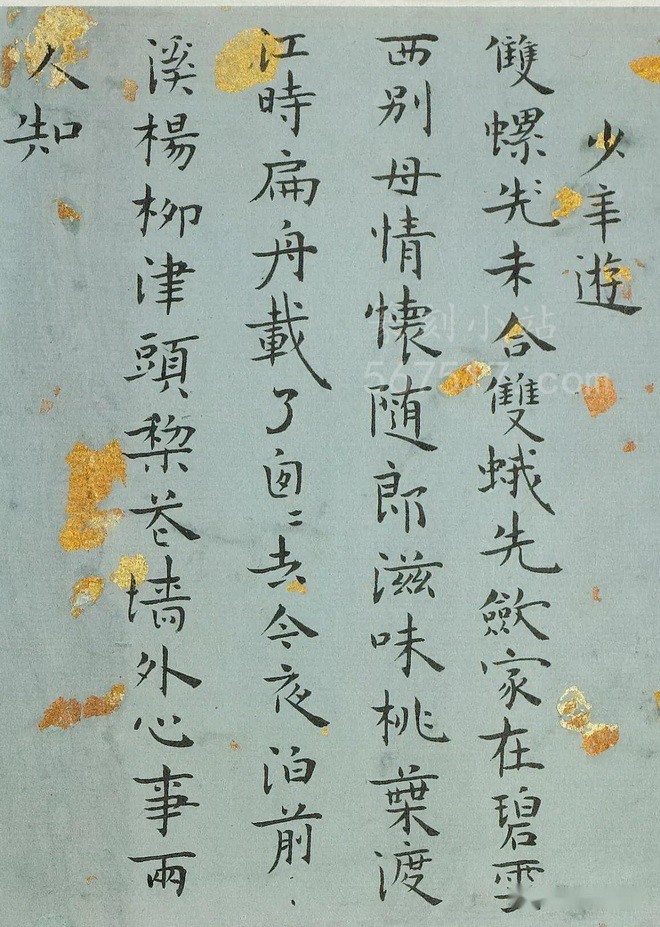 少年遊
雙螺先未合雙蛾先斂家在碧雲
西别母情懷随郎滋味桃葉渡
江時扁舟載了匆〻去今夜泊前
溪楊柳津頭梨花墻外心事兩
人知
刻小站
.com